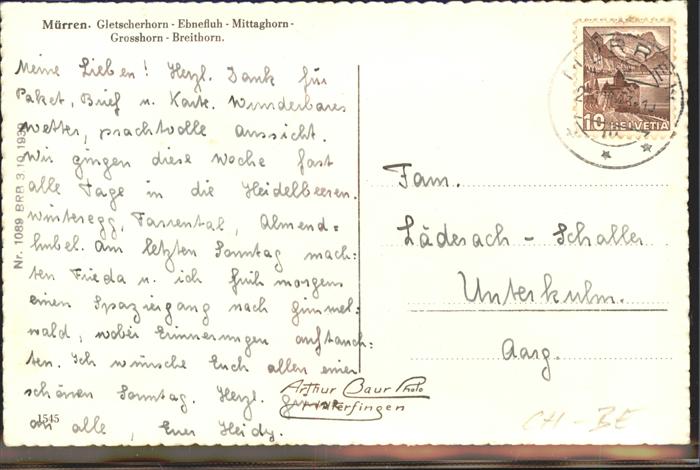 Mürren. Gletscherhorn - Ebnefluh - Mittaghorn -
Grosshorn - Breithorn.
Meine Lieben! Herzl. Dank für
Paket, Brief u. Karte. Wunderbares
Wetter, prachtvolle Aussicht.
Wir gingen diese Woche fast
alle Tage in die Heidelbeeren.
Winteregg, Almend=
hubel. Am letzten Sonntag mach=
ten Frieda u. ich früh morgens
einen Spaziergang nach Gimmel=
wald, wobei Erinnerungen auftauch=
ten. Ich wünsche Euch allen einen
schönen Sonntag. Herzl. Grüsse
an alle, Euer Heidy.
Nr. 1089 BRB 3.10.1939
1545
Arthur Baur Photo
Hilterfingen
MÜRREN
10 HELVETIA
Fam.
Läderach - Schaller
Unterkulm.
Aarg.
CH - BE